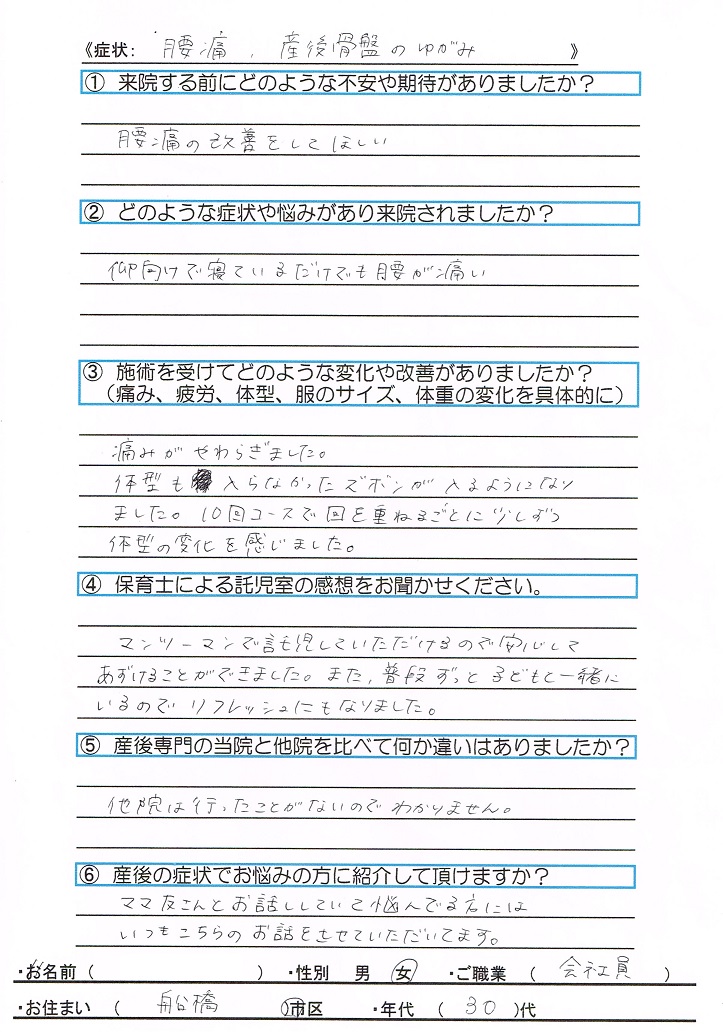 《症状: 腰痛、産後骨盤のゆがみ 》
① 来院する前にどのような不安や期待がありましたか？
腰痛の改善をしてほしい
② どのような症状や悩みがあり来院されましたか？
仰向けで寝ているだけでも腰が痛い
③ 施術を受けてどのような変化や改善がありましたか？
（痛み、疲労、体型、服のサイズ、体重の変化を具体的に）
痛みがやわらぎました。
体型も入らなかったズボンが入るようになり
ました。10回コースで回を重ねるごとに少しずつ
体型の変化を感じました。
④ 保育士による託児室の感想をお聞かせください。
マンツーマンで託児していただけるので安心して
あずけることができました。また、普段ずっと子どもと一緒に
いるのでリフレッシュにもなりました。
⑤ 産後専門の当院と他院を比べて何か違いはありましたか？
他院は行ったことがないのでわかりません。
⑥ 産後の症状でお悩みの方に紹介して頂けますか？
ママ友さんとお話ししていて悩んでる方には
いつもこちらのお話をさせていただいてます。
・お名前（ ）・性別 男 女 ・ご職業（ 会社員 ）
・お住まい（ 船橋 ）市区 ・年代（ 30 ）代